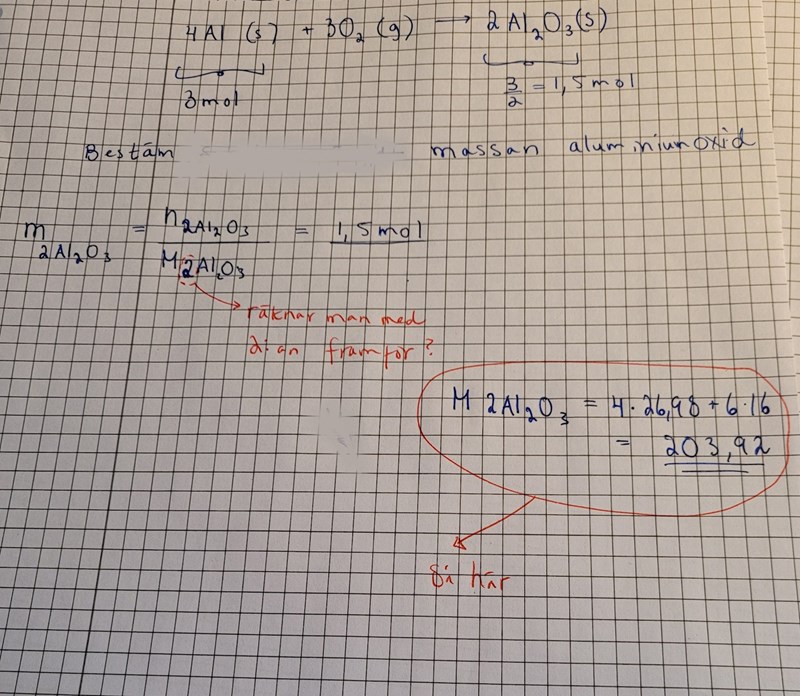 4Al (s) + 3O₂ (g) → 2Al₂O₃(s)
3mol
3/2 = 1,5mol
Bestäm massan aluminiumoxid
m 2Al₂O₃ = n 2Al₂O₃ / M 2Al₂O₃ = 1,5mol
räknar man med
2:an framför?
M 2Al₂O₃ = 4·26,98+6·16
= 203,92
Så här